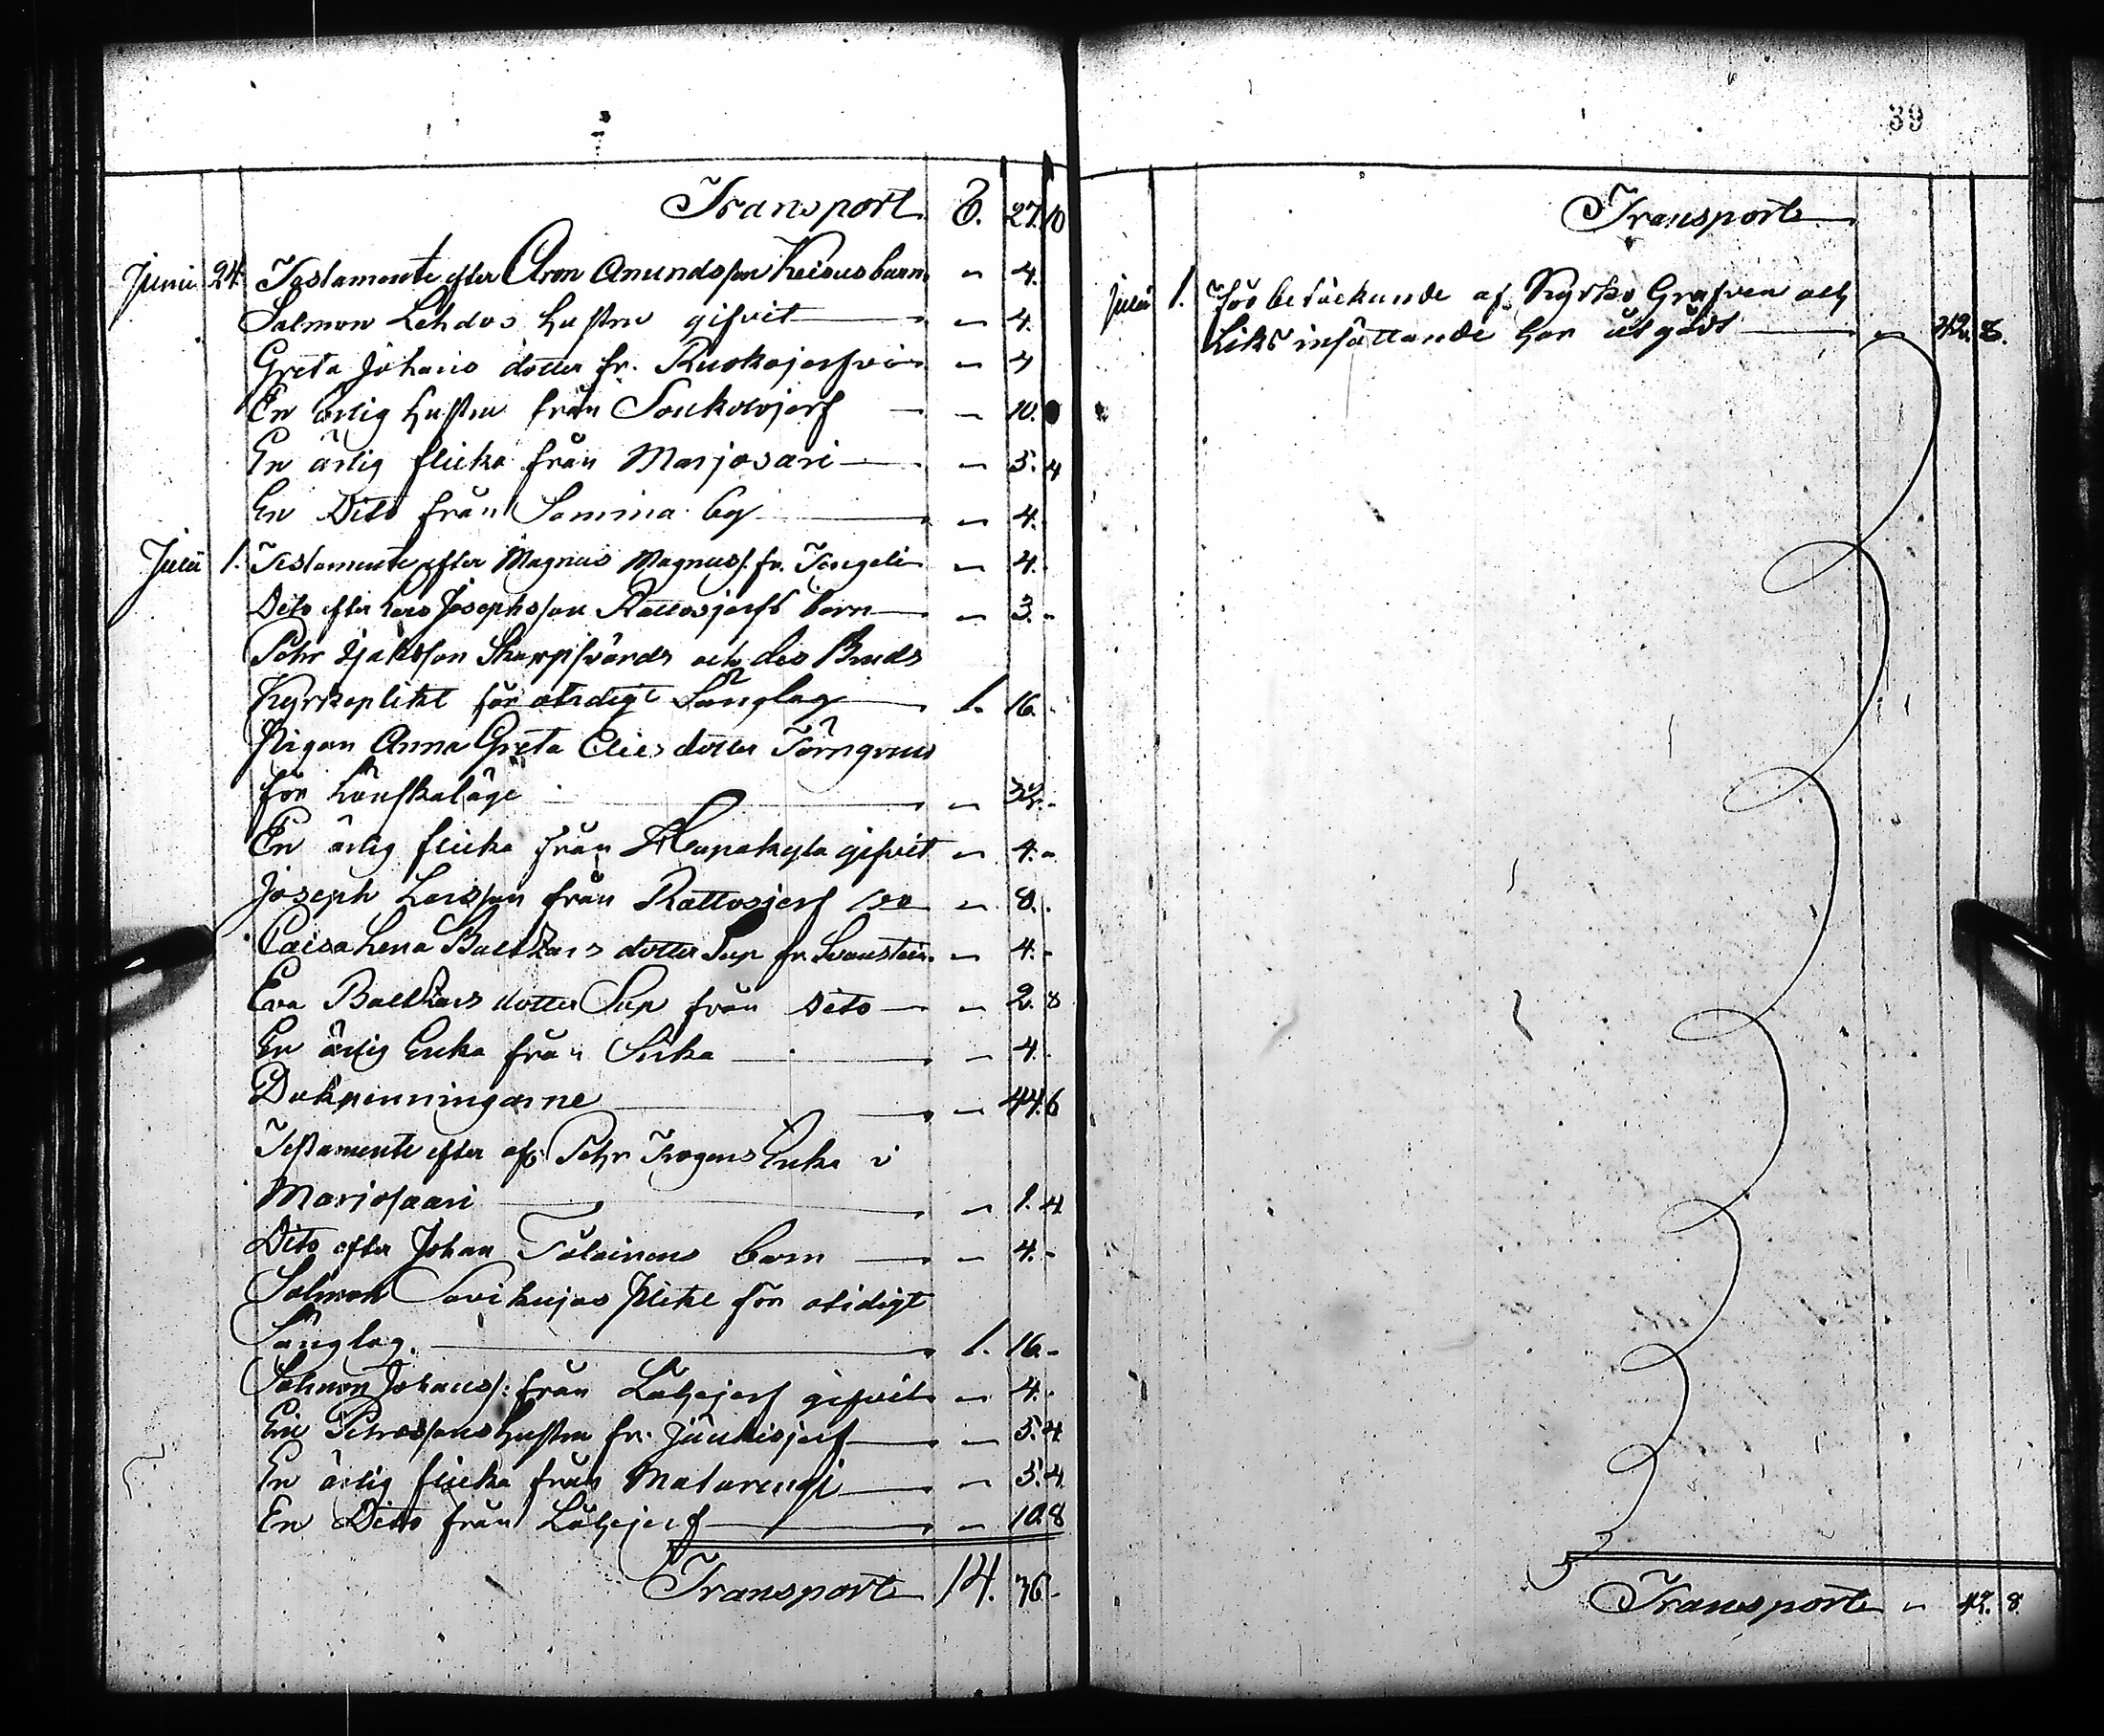 39
Transport 6. 27. 10
Juni 24. Testamente efter Aron Amundsson Keisus barn " 4.
Salmon Lehdos hustru gifvit " 4.
Greta Johans dotter fr. Ruokojerfvi " 4
En ärlig hustru från Soukolojerf " 10.
En ärlig flicka från Marjosari " 5. 4
En Dito från Samma by " 4.
Julii 1. Testamente efter Magnus Magnuss. fr. Tengeli " 4.
Dito efter Lars Josephsson Rattosjerfs barn " 3. -
Pehr Isaksson Skarpsvärds och des Bruds
Kyrkoplikt för otidigt Sänglag 1. 16. -
Pigan Anna Greta Elies dotter Törngrens
för Lönskaläge " 32. -
En ärlig flicka från Haapakyla gifvit " 4. -
Joseph Larsson från Rattosjerf " 8. -
Caisa Lena Balthzars dotter Sup fr. Svanstein " 4. -
Eva Balthzars dotter Sup från Dito " 2. 8
En ärlig Enka från Sirka " 4. -
Dukpenningarne " 44. 6
Testamente efter afl. Pehr Krogens Enka i
Marjosaari " 1. 4
Dito efter Johan Tolainens barn " 4. -
Salmon Savikujas plikt för otidigt
Sänglag. 1. 16. -
Salmon Johanss: från Lohijerf gifvit " 4. -
Eric Pehrssons hustru fr. Juukisjerf " 5. 4
En ärlig flicka från Matarengi " 5. 4
En Dito från Lohijerf " 10. 8
Transport 14. 36. -
Transport
Julii 1. För betäckande af Kyrko Grafven och
Liks insättande har utgådt " 42. 8.
Transport " 42. 8.